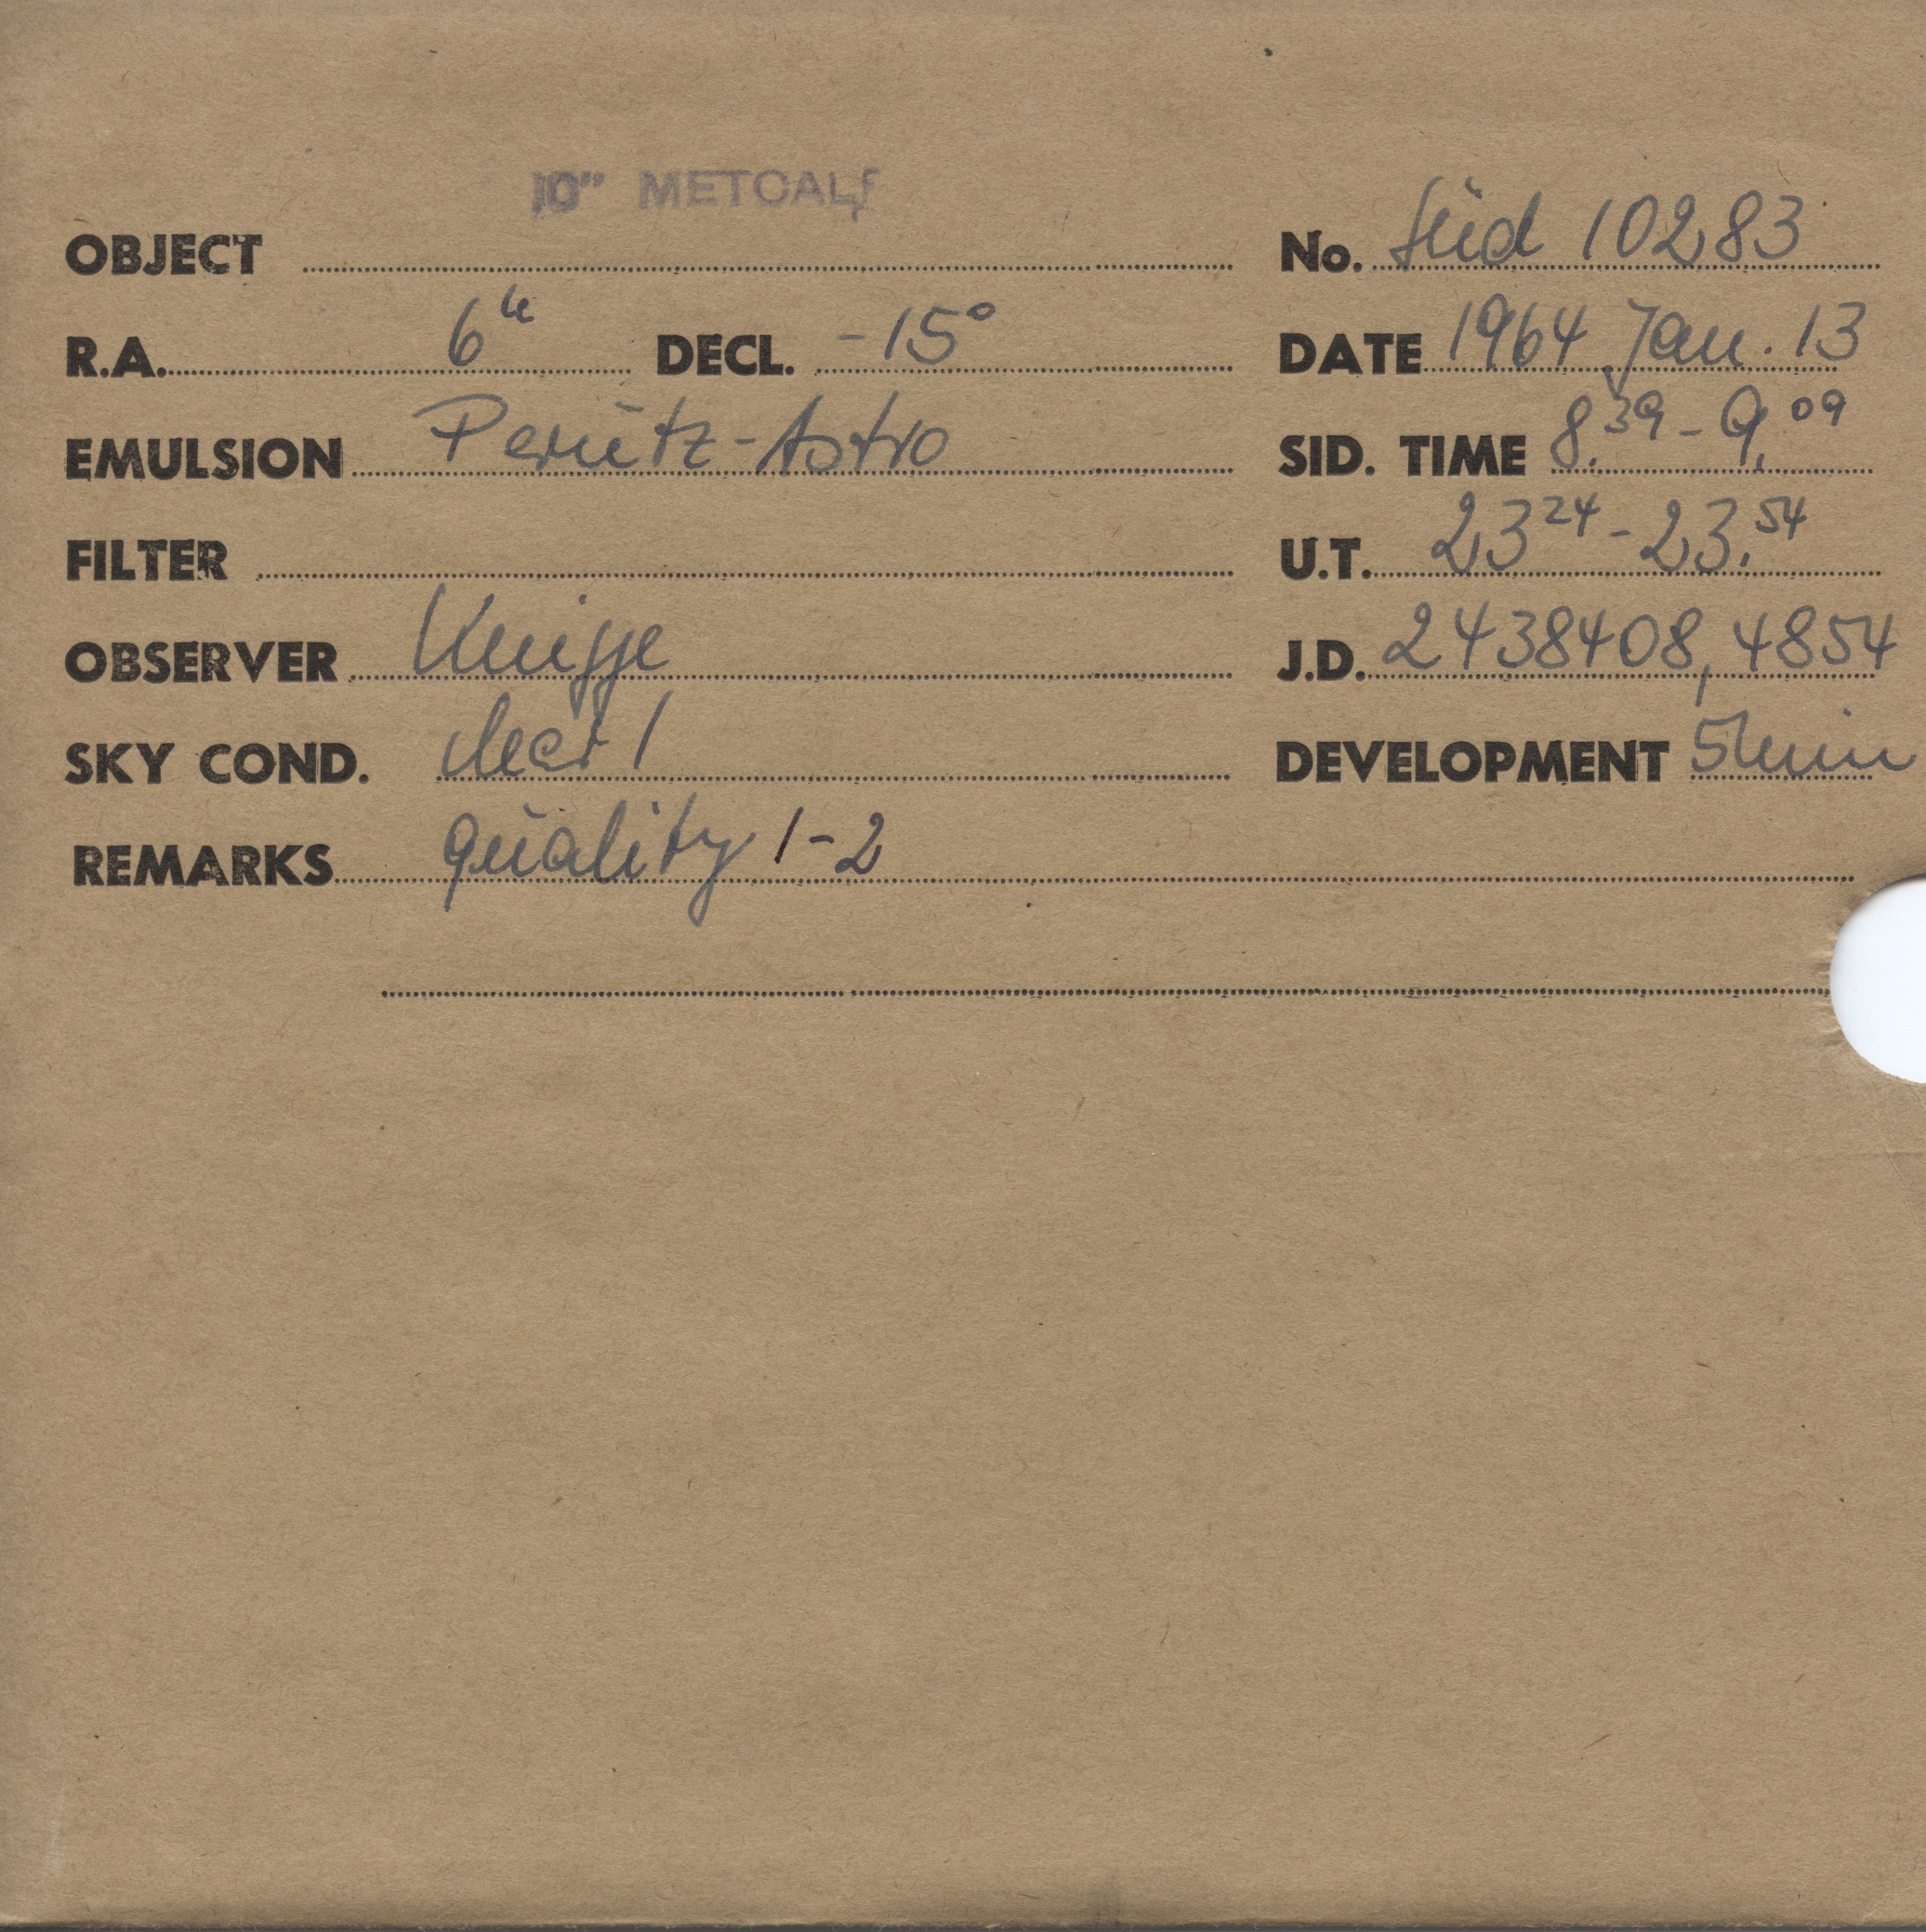 10" METCALF
OBJECT No. Süd 10283
R.A. 6h DECL. -15° DATE 1964 Jan. 13
EMULSION Perutz-Astro SID. TIME 8.39 - 9.09
FILTER U.T. 23 24 - 23.54
OBSERVER Knigge J.D. 2438408,4854
SKY COND. clear 1 DEVELOPMENT 5min
REMARKS quality 1-2